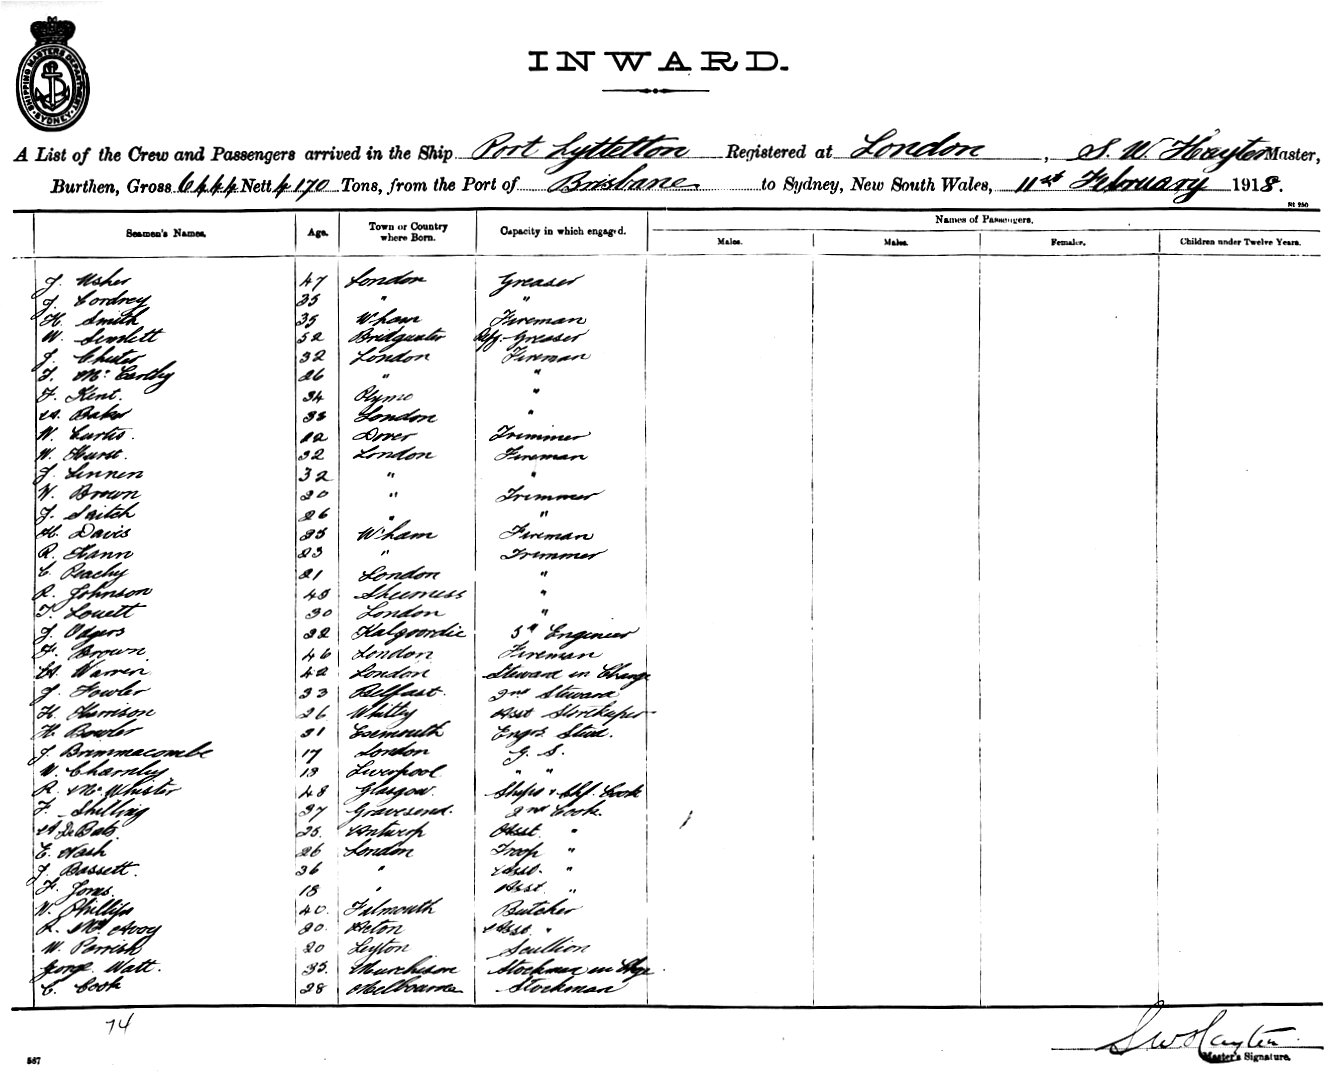 SHIPPING MASTERS DEPARTMENT SYDNEY
INWARD.
A List of the Crew and Passengers arrived in the Ship Port Lyttelton Registered at London, S. W. Hayter Master,
Burthen, Gross 6444 Nett 4170 Tons, from the Port of Brisbane to Sydney, New South Wales, 11st February 1918.
St 250
Seamen's Names. Age. Town or Country where Born. Capacity in which engaged. Names of Passengers.
Males. Males. Females. Children under Twelve Years.
J. Usher 47 London Greaser
J. Cordrey 35 " "
H. Smith 35 W'ham Fireman
W. 52 Bridgwater Greaser
J. Chuter 32 London Fireman
J. McCarthy 26 " "
F. Kent. 34 Plymo "
A. Baker 33 London "
W. Curtis. 22 Dover Trimmer
W. Hurst. 32 London Fireman
J. Lennen 32 " "
W. Brown 20 " Trimmer
J. Saitch 26 " "
H. Davis 25 W'ham Fireman
R. Hann 23 " Trimmer
C. Peachy 21 London "
R. Johnson 45 Sheerness "
T. Lovett 30 London "
J. Odgers 22 Kalgoordie 5th Engineer
F. Brown 46 London Fireman
A. Warren 42 London Steward in Charge
J. Fowler 33 Belfast. 2nd Steward
H. Harrison 26 Whitby Asst Storekeeper
H. Bowler 21 Exmouth Engrs. Stwd.
J. Brimmacombe 17 London G. S.
W. Charnley 19 Liverpool " "
R. McWhister 48 Glasgow. Ships & Chf. Cook
F. Shilling 37 Gravesend. 2nd Cook.
A. De Bats. 25. Antwerp Asst. "
E. Nash 26 London Troop "
J. Bassett. 36 " Asst. "
F. Jones. 18 " Asst. "
W. Phillips 40. Falmouth Butcher
R. McAvoy 20. Acton Asst. "
W. Parrish 20 Leyton Scullion
George Watt. 35. Murchison Stockman in Chge.
C. Cook 28 Melbourne Stockman
74
S W Hayter
Master's Signature.
567